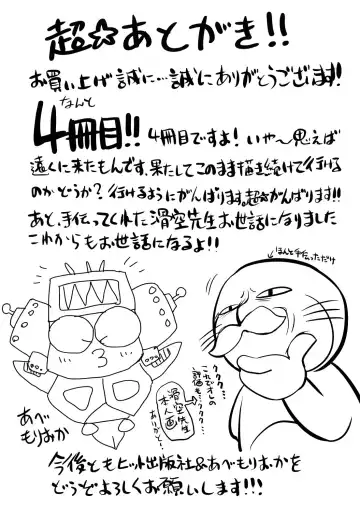 超☆あとがき!!
お買い上げ誠に…誠にありがとうございます!
なんと
4冊目!! 4冊目ですよ! いや〜思えば
遠くに来たもんです。果たしてこのまま描き続けて行ける
のかどうか? 行けるようにがんばります。超☆がんばります!!
あと、手伝ってくれた滑空先生お世話になりました
これからもお世話になるよ!!
ほんと手伝っただけ
ククク…
これでオレの
評価も…
ククク…
滑空先生
本人画
ありがと〜
あべ
もりおか
今後ともヒット出版社&あべもりおかを
どうぞよろしくお願いします!!!